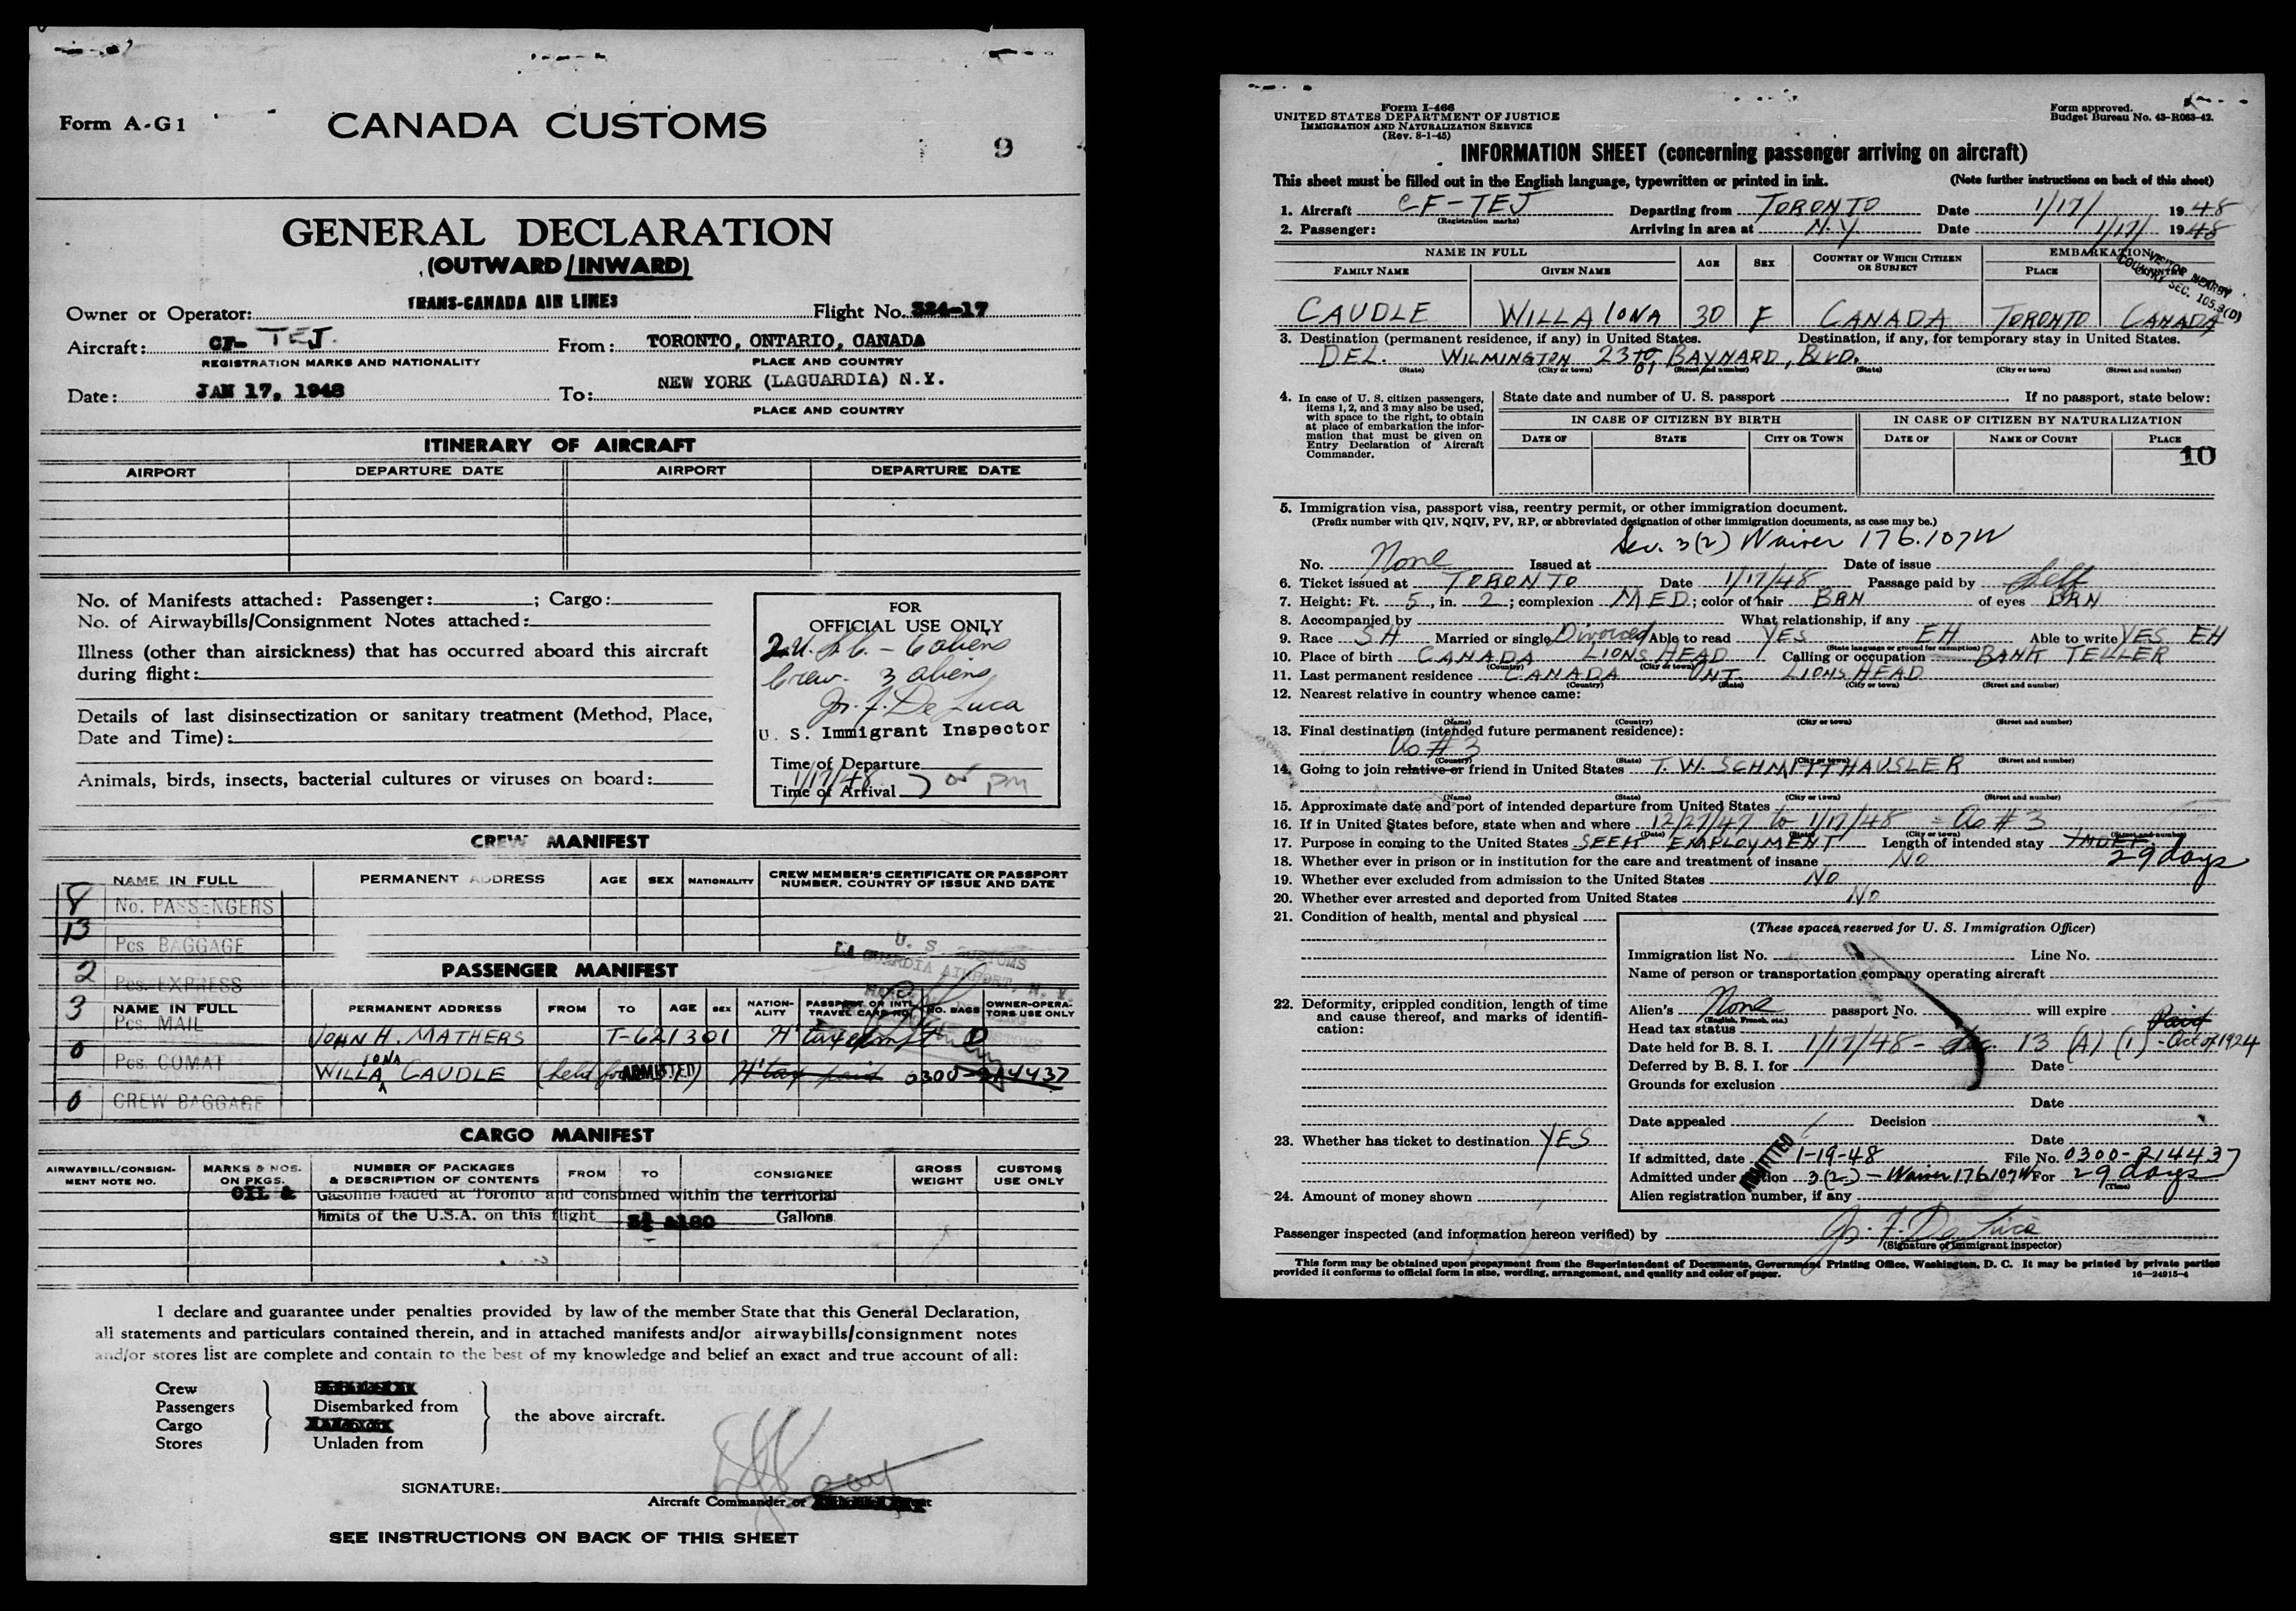 Form A-G1
CANADA CUSTOMS
9
GENERAL DECLARATION
(OUTWARD/INWARD)
Owner or Operator: TRANS-CANADA AIR LINES Flight No. 324-17
Aircraft: CF- TEJ. From: TORONTO, ONTARIO, CANADA
REGISTRATION MARKS AND NATIONALITY PLACE AND COUNTRY
Date: JAN 17, 1948 To: NEW YORK (LAGUARDIA) N.Y.
PLACE AND COUNTRY
ITINERARY OF AIRCRAFT
AIRPORT DEPARTURE DATE AIRPORT DEPARTURE DATE
No. of Manifests attached: Passenger: ; Cargo:
No. of Airwaybills/Consignment Notes attached:
Illness (other than airsickness) that has occurred aboard this aircraft
during flight:
Details of last disinsectization or sanitary treatment (Method, Place,
Date and Time):
Animals, birds, insects, bacterial cultures or viruses on board:
FOR
OFFICIAL USE ONLY
2 U.S.C. - 6 aliens
Crew. 3 aliens
Jos. F. De Luca
U. S. Immigrant Inspector
Time of Departure
1/17/48
Time of Arrival PM
CREW MANIFEST
NAME IN FULL PERMANENT ADDRESS AGE SEX NATIONALITY CREW MEMBER'S CERTIFICATE OR PASSPORT
NUMBER, COUNTRY OF ISSUE AND DATE
8 No. PASSENGERS
13 Pcs. BAGGAGE
U. S. CUSTOMS
LA GUARDIA AIRPORT, N. Y.
PASSENGER MANIFEST
2 Pcs. EXPRESS
3 NAME IN FULL PERMANENT ADDRESS FROM TO AGE SEX NATION-ALITY PASSPORT OR INTL TRAVEL CARD NO. NO. BAGS OWNER-OPERA-TORS USE ONLY
Pcs. MAIL
JOHN H. MATHERS T-621301 H' tax exempt
0 Pcs. COMAT
WILLA IONA CAUDLE (held for ADMITTED) H'tax paid 0300-214437
0 CREW BAGGAGE
CARGO MANIFEST
AIRWAYBILL/CONSIGN-MENT NOTE NO. MARKS & NOS. ON PKGS. NUMBER OF PACKAGES & DESCRIPTION OF CONTENTS FROM TO CONSIGNEE GROSS WEIGHT CUSTOMS USE ONLY
OIL & Gasoline loaded at Toronto and consumed within the territorial
limits of the U.S.A. on this flight 180 Gallons
I declare and guarantee under penalties provided by law of the member State that this General Declaration,
all statements and particulars contained therein, and in attached manifests and/or airwaybills/consignment notes
and/or stores list are complete and contain to the best of my knowledge and belief an exact and true account of all:
Crew
Passengers Disembarked from
Cargo the above aircraft.
Stores Unladen from
SIGNATURE:
Aircraft Commander or
SEE INSTRUCTIONS ON BACK OF THIS SHEET
Form I-466
UNITED STATES DEPARTMENT OF JUSTICE
IMMIGRATION AND NATURALIZATION SERVICE
(Rev. 8-1-45)
Form approved.
Budget Bureau No. 43-R063-42.
INFORMATION SHEET (concerning passenger arriving on aircraft)
This sheet must be filled out in the English language, typewritten or printed in ink. (Note further instructions on back of this sheet)
1. Aircraft CF-TEJ Departing from TORONTO Date 1/17/ 1948
(Registration marks)
2. Passenger: Arriving in area at N.Y. Date 1/17/ 1948
NAME IN FULL AGE SEX COUNTRY OF WHICH CITIZEN OR SUBJECT EMBARKATION
FAMILY NAME GIVEN NAME PLACE
VISITOR NEARBY
COUNTRY SEC. 105.3(D)
CAUDLE WILLA IONA 30 F CANADA TORONTO CANADA
3. Destination (permanent residence, if any) in United States. Destination, if any, for temporary stay in United States.
DEL. WILMINGTON 2301 BAYNARD, BLVD.
(State) (City or town) (Street and number) (State) (City or town) (Street and number)
4. In case of U. S. citizen passengers, items 1, 2, and 3 may also be used, with space to the right, to obtain at place of embarkation the information that must be given on Entry Declaration of Aircraft Commander.
State date and number of U. S. passport If no passport, state below:
IN CASE OF CITIZEN BY BIRTH IN CASE OF CITIZEN BY NATURALIZATION
DATE OF STATE CITY OR TOWN DATE OF NAME OF COURT PLACE
10
5. Immigration visa, passport visa, reentry permit, or other immigration document.
(Prefix number with QIV, NQIV, PV, RP, or abbreviated designation of other immigration documents, as case may be.)
Sec. 3(2) Waiver 176.107W
No. None Issued at Date of issue
6. Ticket issued at TORONTO Date 1/17/48 Passage paid by Self
7. Height: Ft. 5, in. 2; complexion MED; color of hair BRN of eyes BRN
8. Accompanied by What relationship, if any
9. Race SH Married or single Divorced Able to read YES EH Able to write YES EH
(State language or ground for exemption)
10. Place of birth CANADA LIONS HEAD Calling or occupation BANK TELLER
(Country) (City or town)
11. Last permanent residence CANADA ONT. LIONS HEAD
(Country) (State) (City or town) (Street and number)
12. Nearest relative in country whence came:
(Name) (Country) (City or town) (Street and number)
13. Final destination (intended future permanent residence):
As # 3
(Country) (State) (City or town) (Street and number)
14. Going to join relative or friend in United States T. W. SCHMITTHAUSLER
(Name) (State) (City or town) (Street and number)
15. Approximate date and port of intended departure from United States
16. If in United States before, state when and where 12/27/47 to 1/17/48 - As # 3
(Date) (State) (City or town) (Street and number)
17. Purpose in coming to the United States SEEK EMPLOYMENT Length of intended stay INDEF.
29 days
18. Whether ever in prison or in institution for the care and treatment of insane NO
19. Whether ever excluded from admission to the United States NO
20. Whether ever arrested and deported from United States NO
21. Condition of health, mental and physical
22. Deformity, crippled condition, length of time and cause thereof, and marks of identification:
23. Whether has ticket to destination YES
24. Amount of money shown
(These spaces reserved for U. S. Immigration Officer)
Immigration list No. Line No.
Name of person or transportation company operating aircraft
Alien's None passport No. will expire
(English, French, etc.)
Head tax status Paid
Date held for B. S. I. 1/17/48 - Sec. 13 (A) (1) - Act of 1924
Deferred by B. S. I. for Date
Grounds for exclusion
Date
Date appealed Decision
Date
ADMITTED
If admitted, date 1-19-48 File No. 0300-214437
Admitted under section 3(2) - Waiver 176107W For 29 days
(Time)
Alien registration number, if any
Passenger inspected (and information hereon verified) by Jos. F. De Luca
(Signature of immigrant inspector)
This form may be obtained upon prepayment from the Superintendent of Documents, Government Printing Office, Washington, D. C. It may be printed by private parties
provided it conforms to official form in size, wording, arrangement, and quality and color of paper.
16—24915-4